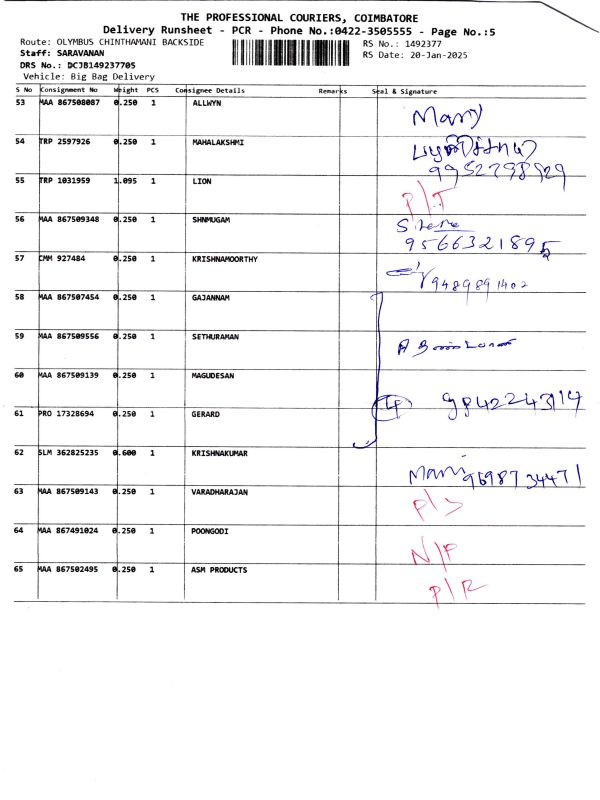 THE PROFESSIONAL COURIERS, COIMBATORE
Delivery Runsheet - PCR - Phone No.:0422-3505555 - Page No.:5
Route: OLYMBUS CHINTHAMANI BACKSIDE
RS No.: 1492377
Staff: SARAVANAN
RS Date: 20-Jan-2025
DRS No.: DCJB149237705
Vehicle: Big Bag Delivery
S No Consignment No Weight PCS Consignee Details Remarks Seal & Signature
53 MAA 867508087 0.250 1 ALLWYN Mary
54 TRP 2597926 0.250 1 MAHALAKSHMI
9952798929
55 TRP 1031959 1.095 1 LION P/T
56 MAA 867509348 0.250 1 SHNMUGAM
9566321895
57 CMM 927484 0.250 1 KRISHNAMOORTHY
9489891402
58 MAA 867507454 0.250 1 GAJANNAM
59 MAA 867509556 0.250 1 SETHURAMAN
60 MAA 867509139 0.250 1 MAGUDESAN
61 PRO 17328694 0.250 1 GERARD 9842243114
62 SLM 362825235 0.600 1 KRISHNAKUMAR Mani 9698734471
63 MAA 867509143 0.250 1 VARADHARAJAN
64 MAA 867491024 0.250 1 POONGODI N/F
65 MAA 867502495 0.250 1 ASM PRODUCTS P/R